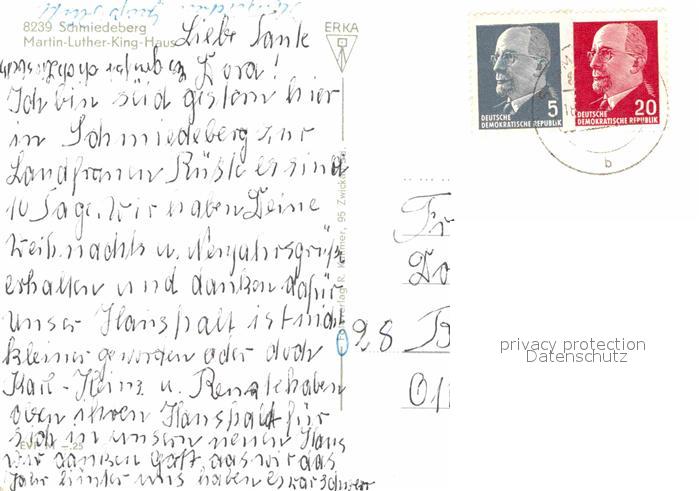 8239 Schmiedeberg
Martin-Luther-King-Haus
ERKA
Liebe Tante
Dora!
Ich bin seid gestern hier
in Schmiedeberg zur
Landfrauen Rüste es sind
10 Tage. Wir haben Deine
Weihnachts u. Neujahrsgrüße
erhalten und danken dafür
Unser Haushalt ist nicht
kleiner geworden oder doch
Karl-Heinz u. Renate haben
oben ihren Haushalt für
sich in unsern neuen Haus
wir danken Gott, das wir das
Jahr hinter uns haben es war schwer
EVP M -.25
Verlag R. Krömer, 95 Zwickau
5
DEUTSCHE
DEMOKRATISCHE REPUBLIK
20
DEUTSCHE
DEMOKRATISCHE REPUBLIK
b
Fr
Do
28 B
privacy protection
Datenschutz